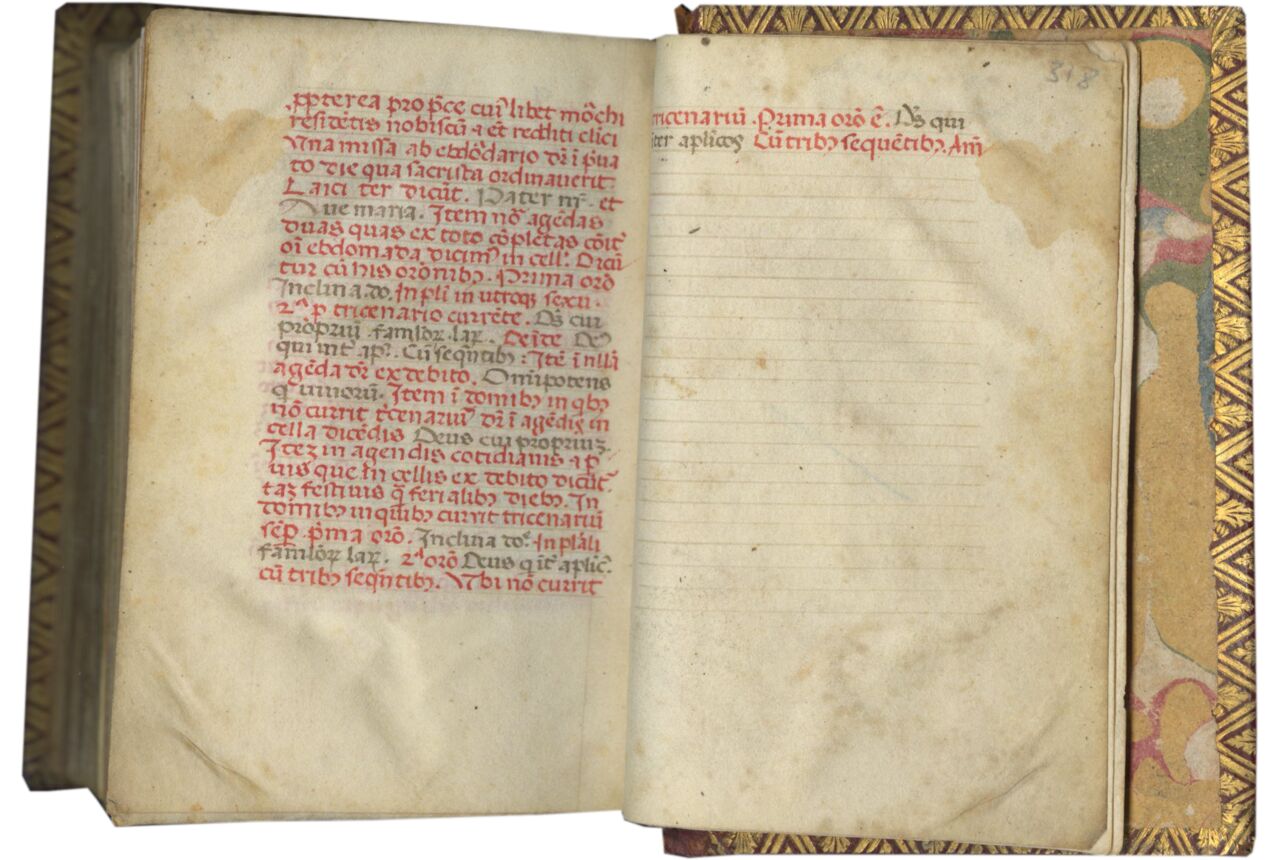 ꝓpterea pro p̄ce cuiꝰlibet mōchi
residētis nobiscū ⁊ et redditi cl̄ici
Vna missa ab ebdōdario dr̄ ī p̄ua
to die qua sacrista ordinauerit.
Laici ter dicūt. Pater nr̄. et
Aue maria. Item nō agēdas
duas quas ex toto cōpletas cōit̄
oī ebdomada dicimꝰ in cellꝭ. Dicū
tur cū his orōnibꝫ. Prima orō
Inclina do. In pl̄i in utroqꝫ sexu.
2ᵃ p̲ tricenario currēte. Dꝰ cui
propriū. famlōꝝ laꝝ. Deīde Deꝰ
qui int̄ apꝉ. Cū seqn̄tibꝫ: Itē ī nlla
agēda dr̄ ex debito. Om̄ipotens
Item ī domibꝫ in qbꝫ
nō currit tͥcenariū dr̄ ī agēdis in
cella dicēdis Deus cui propriuꝫ.
Iteꝫ in agendis cotidianis ⁊ p̄
uis que in cellis ex debito dicūt̄
taꝫ festiuis q̄ ferialibꝫ diebꝫ. In
domibꝫ in quibꝫ currit tricenariū
sēp̲. p̄ma orō. Inclina doᵉ. In plāli
famlōꝝ laꝝ. 2ᵃ orō Deus q īt̄ aplic̄.
cū tribꝫ seqn̄tibꝫ. Vbi nō currit
tricenariū. Prima orō ē. Dꝰ qui
īter aplicos Cū tribꝫ sequētibꝫ. Am̄
318